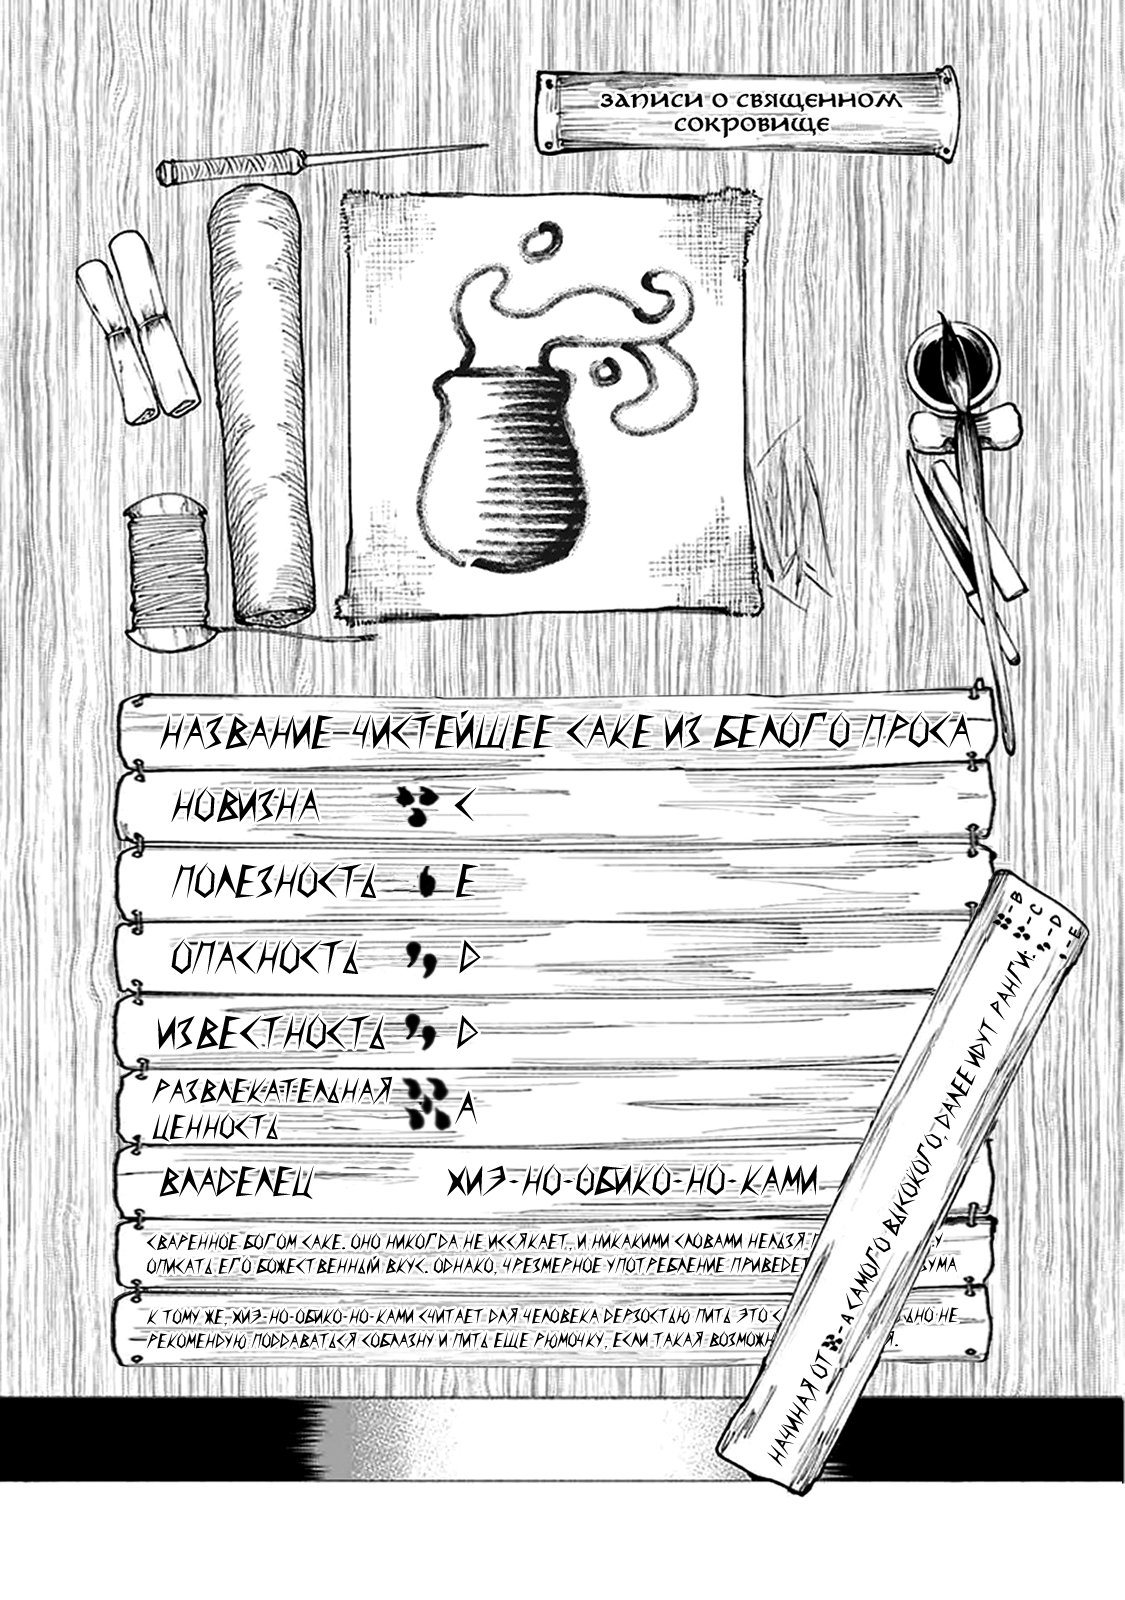 ЗАПИСИ О СВЯЩЕННОМ
СОКРОВИЩЕ
НАЗВАНИЕ-ЧИСТЕЙШЕЕ САКЕ ИЗ БЕЛОГО ПРОСА
НОВИЗНА C
ПОЛЕЗНОСТЬ E
ОПАСНОСТЬ D
ИЗВЕСТНОСТЬ D
РАЗВЛЕКАТЕЛЬНАЯ
ЦЕННОСТЬ A
ВЛАДЕЛЕЦ ХИЭ-НО-ОБИКО-НО-КАМИ
СВАРЕННОЕ БОГОМ САКЕ. ОНО НИКОГДА НЕ ИССЯКАЕТ, И НИКАКИМИ СЛОВАМИ НЕЛЬЗЯ
ОПИСАТЬ ЕГО БОЖЕСТВЕННЫЙ ВКУС. ОДНАКО, ЧРЕЗМЕРНОЕ УПОТРЕБЛЕНИЕ ПРИВЕДЕТ
К ТОМУ ЖЕ, ХИЭ-НО-ОБИКО-НО-КАМИ СЧИТАЕТ ДЛЯ ЧЕЛОВЕКА ДЕРЗОСТЬЮ ПИТЬ ЭТО НЕ
РЕКОМЕНДУЮ ПОДДАВАТЬСЯ СОБЛАЗНУ И ПИТЬ ЕЩЕ РЮМОЧКУ, ЕСЛИ ТАКАЯ
НАЧИНАЯ ОТ -А САМОГО ВЫСОКОГО, ДАЛЕЕ ИДУТ РАНГИ:
-B
-C
-D
-E